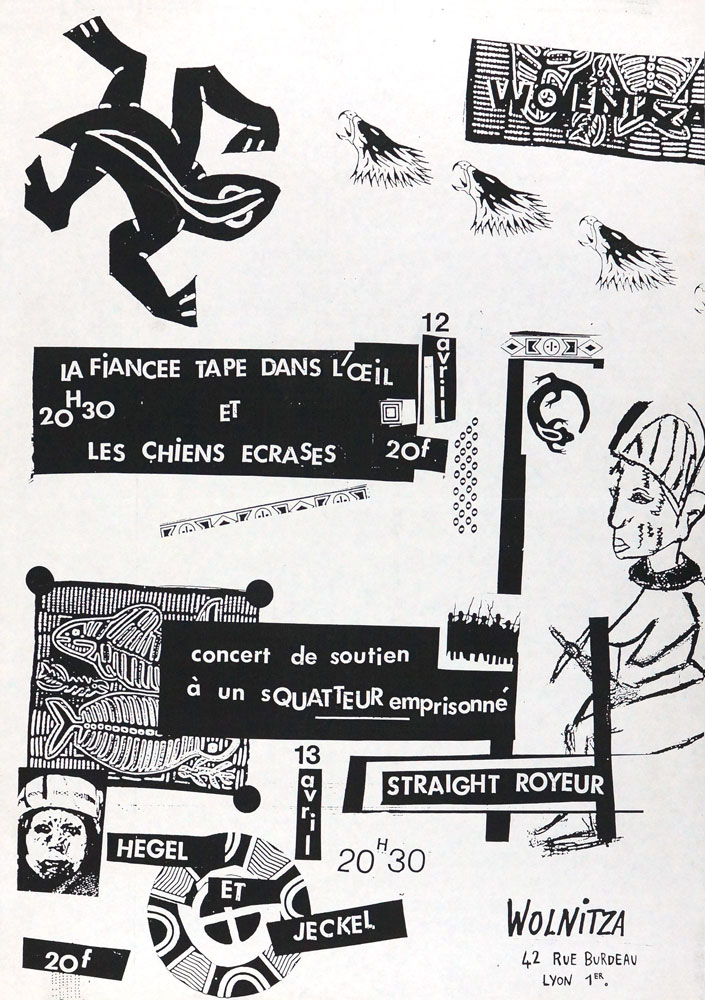 WOLNITZA
12 avril
LA FiANCEE TAPE DANS L'ŒiL
20H30 ET
LES CHiENS ECRASES 20f
concert de soutien
à un sQUATTEUR emprisonné
13 avril
STRAIGHT ROYEUR
HEGEL
20H30
ET
JECKEL
20f
WOLNiTZA
42 RUE BURDEAU
LYON 1ER.